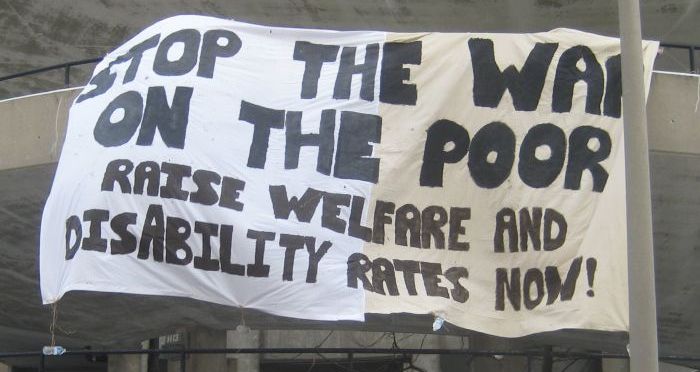 STOP THE WAR
ON THE POOR
RAISE WELFARE AND
DISABILITY RATES NOW!